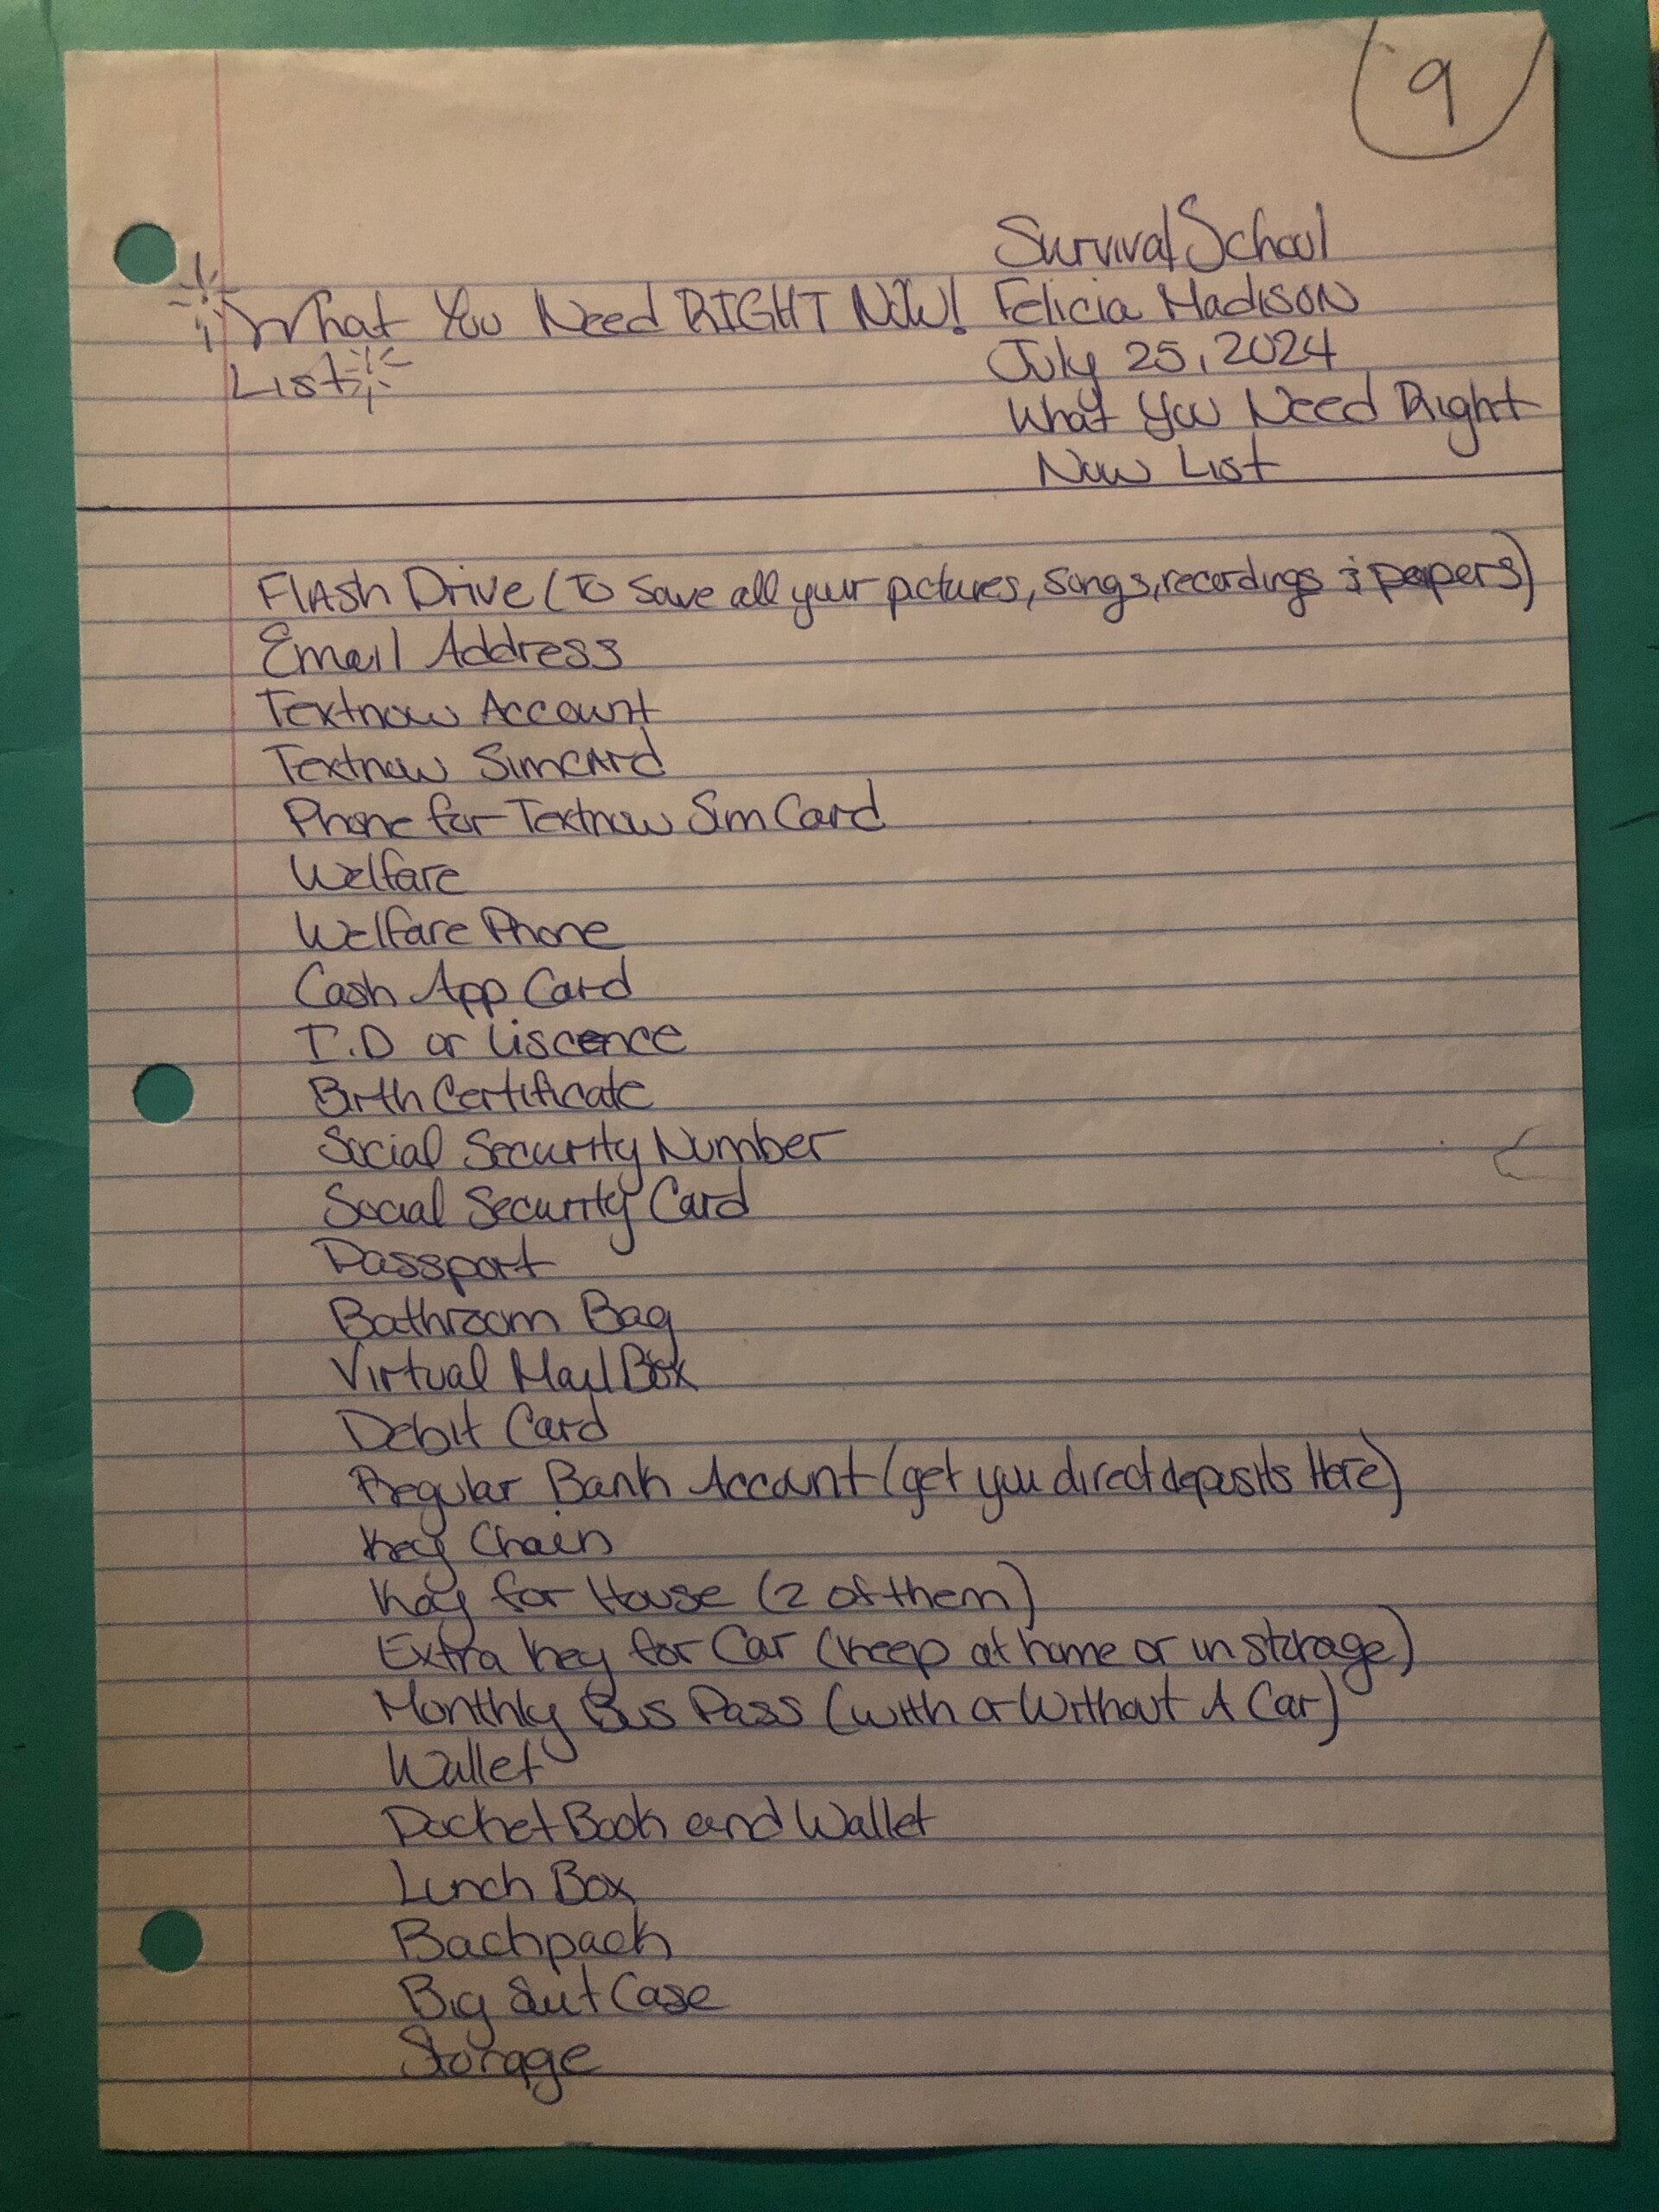 9
Survival School
What You Need RIGHT NOW! Felicia Madison
List July 25, 2024
What You Need Right
Now List
Flash Drive (To save all your pictures, songs, recordings & papers)
Email Address
Textnow Account
Textnow Simcard
Phone for Textnow Sim Card
Welfare
Welfare Phone
Cash App Card
I.D or Liscence
Birth Certificate
Social Security Number
Social Security Card
Passport
Bathroom Bag
Virtual Mail Box
Debit Card
Regular Bank Account (get you direct deposits Here)
Key Chain
Key for House (2 of them)
Extra key for Car (keep at home or in storage)
Monthly Bus Pass (with or Without A Car)
Wallet
Pocket Book and Wallet
Lunch Box
Backpack
Big Suit Case
Storage